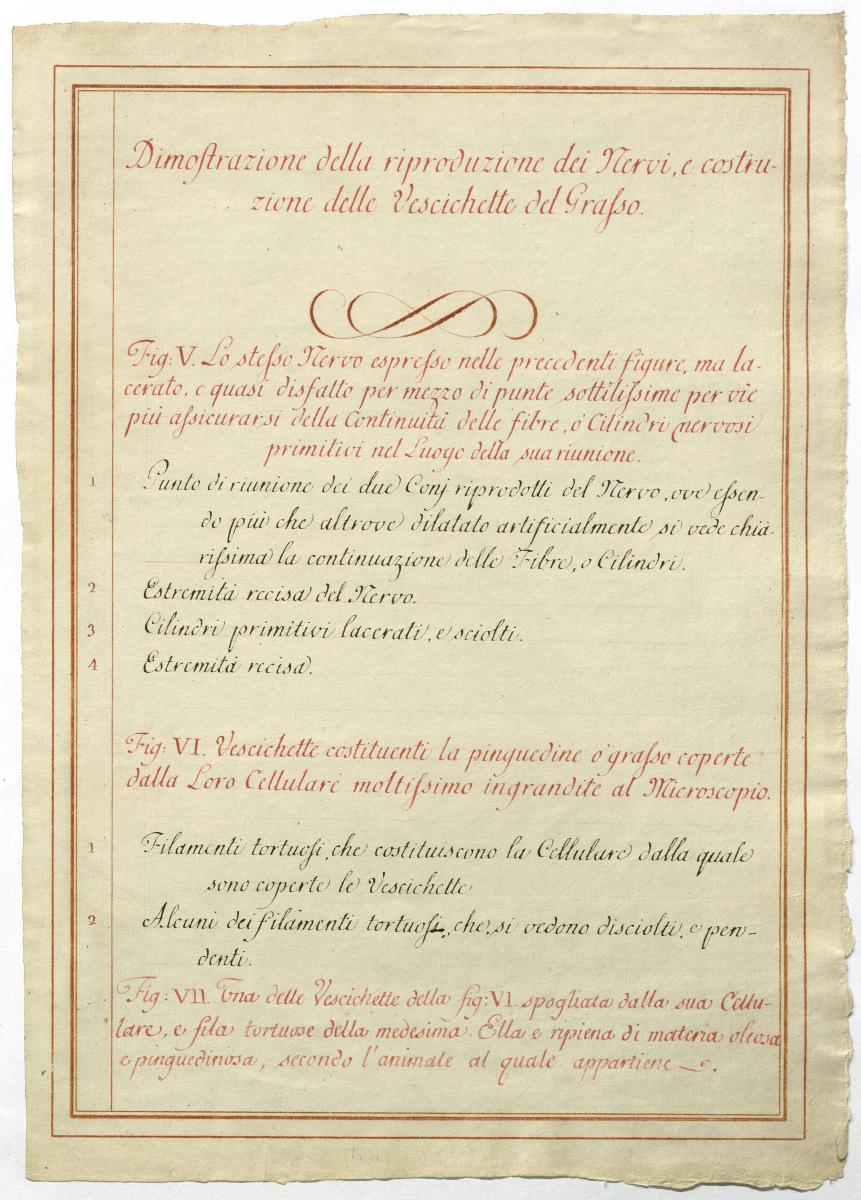 Dimoſtrazione della riproduzione dei Nervi, e costru-
zione delle Vescichette del Graſso.
Fig: V. Lo steſso Nervo espreſso nelle precedenti figure, ma la-
cerato, e quasi disfatto per mezzo di punte sottiliſsime per vie
più aſsicurarsi della Continuità delle fibre, o' Cilindri nervosi
primitivi nel Luogo della sua riunione.
1 Punto di riunione dei due Conj riprodotti del Nervo, ove eſsen-
do più che altrove dilatato artificialmente si vede chia-
riſsima la continuazione delle Fibre, o Cilindri.
2 Estremità recisa del Nervo.
3 Cilindri primitivi lacerati, e sciolti.
4 Estremità recisa.
Fig: VI. Vescichette costituenti la pinguedine o' graſso coperte
dalla Loro Cellulare moltiſsimo ingrandite al Microscopio.
1 Filamenti tortuosi, che costituiscono la Cellulare dalla quale
sono coperte le Vescichette
2 Alcuni dei filamenti tortuosi, che si vedono disciolti, e pen-
denti.
Fig: VII. Una delle Vescichette della fig: VI spogliata dalla sua Cellu-
lare, e fila tortuose della medesima. Ella e ripiena di materia oleosa
e pinguedinosa, secondo l'animale al quale appartiene.